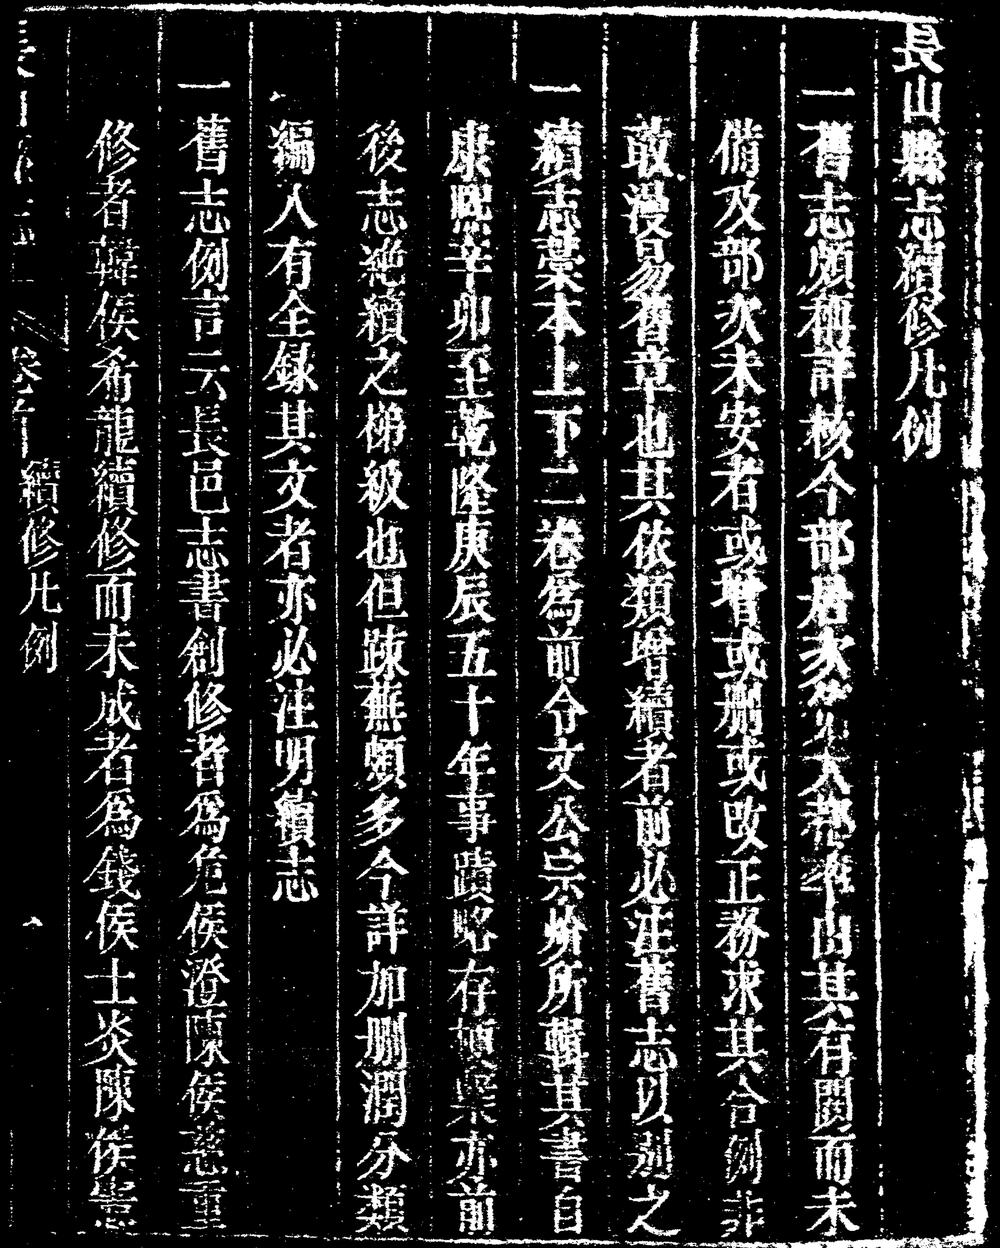 長山縣志續修凡例
一舊志頗稱詳核今部居次第大都率由其有闕而未
備及部次未安者或增或刪或改正務求其合例非
敢漫易舊章也其依類增續者前必注舊志以別之
一續志藁本上下二卷為前令文公宗所輯其書自
康熙辛卯至乾隆庚辰五十年事蹟略存梗槩亦前
後志絶續之梯級也但踈蕪頗多今詳加刪潤分類
編入有全録其文者亦必注明續志
一舊志例言云長邑志書創修者為危侯澄陳侯憲重
修者韓侯希龍續修而未成者為錢侯士炎陳侯憲
卷之 續修凡例